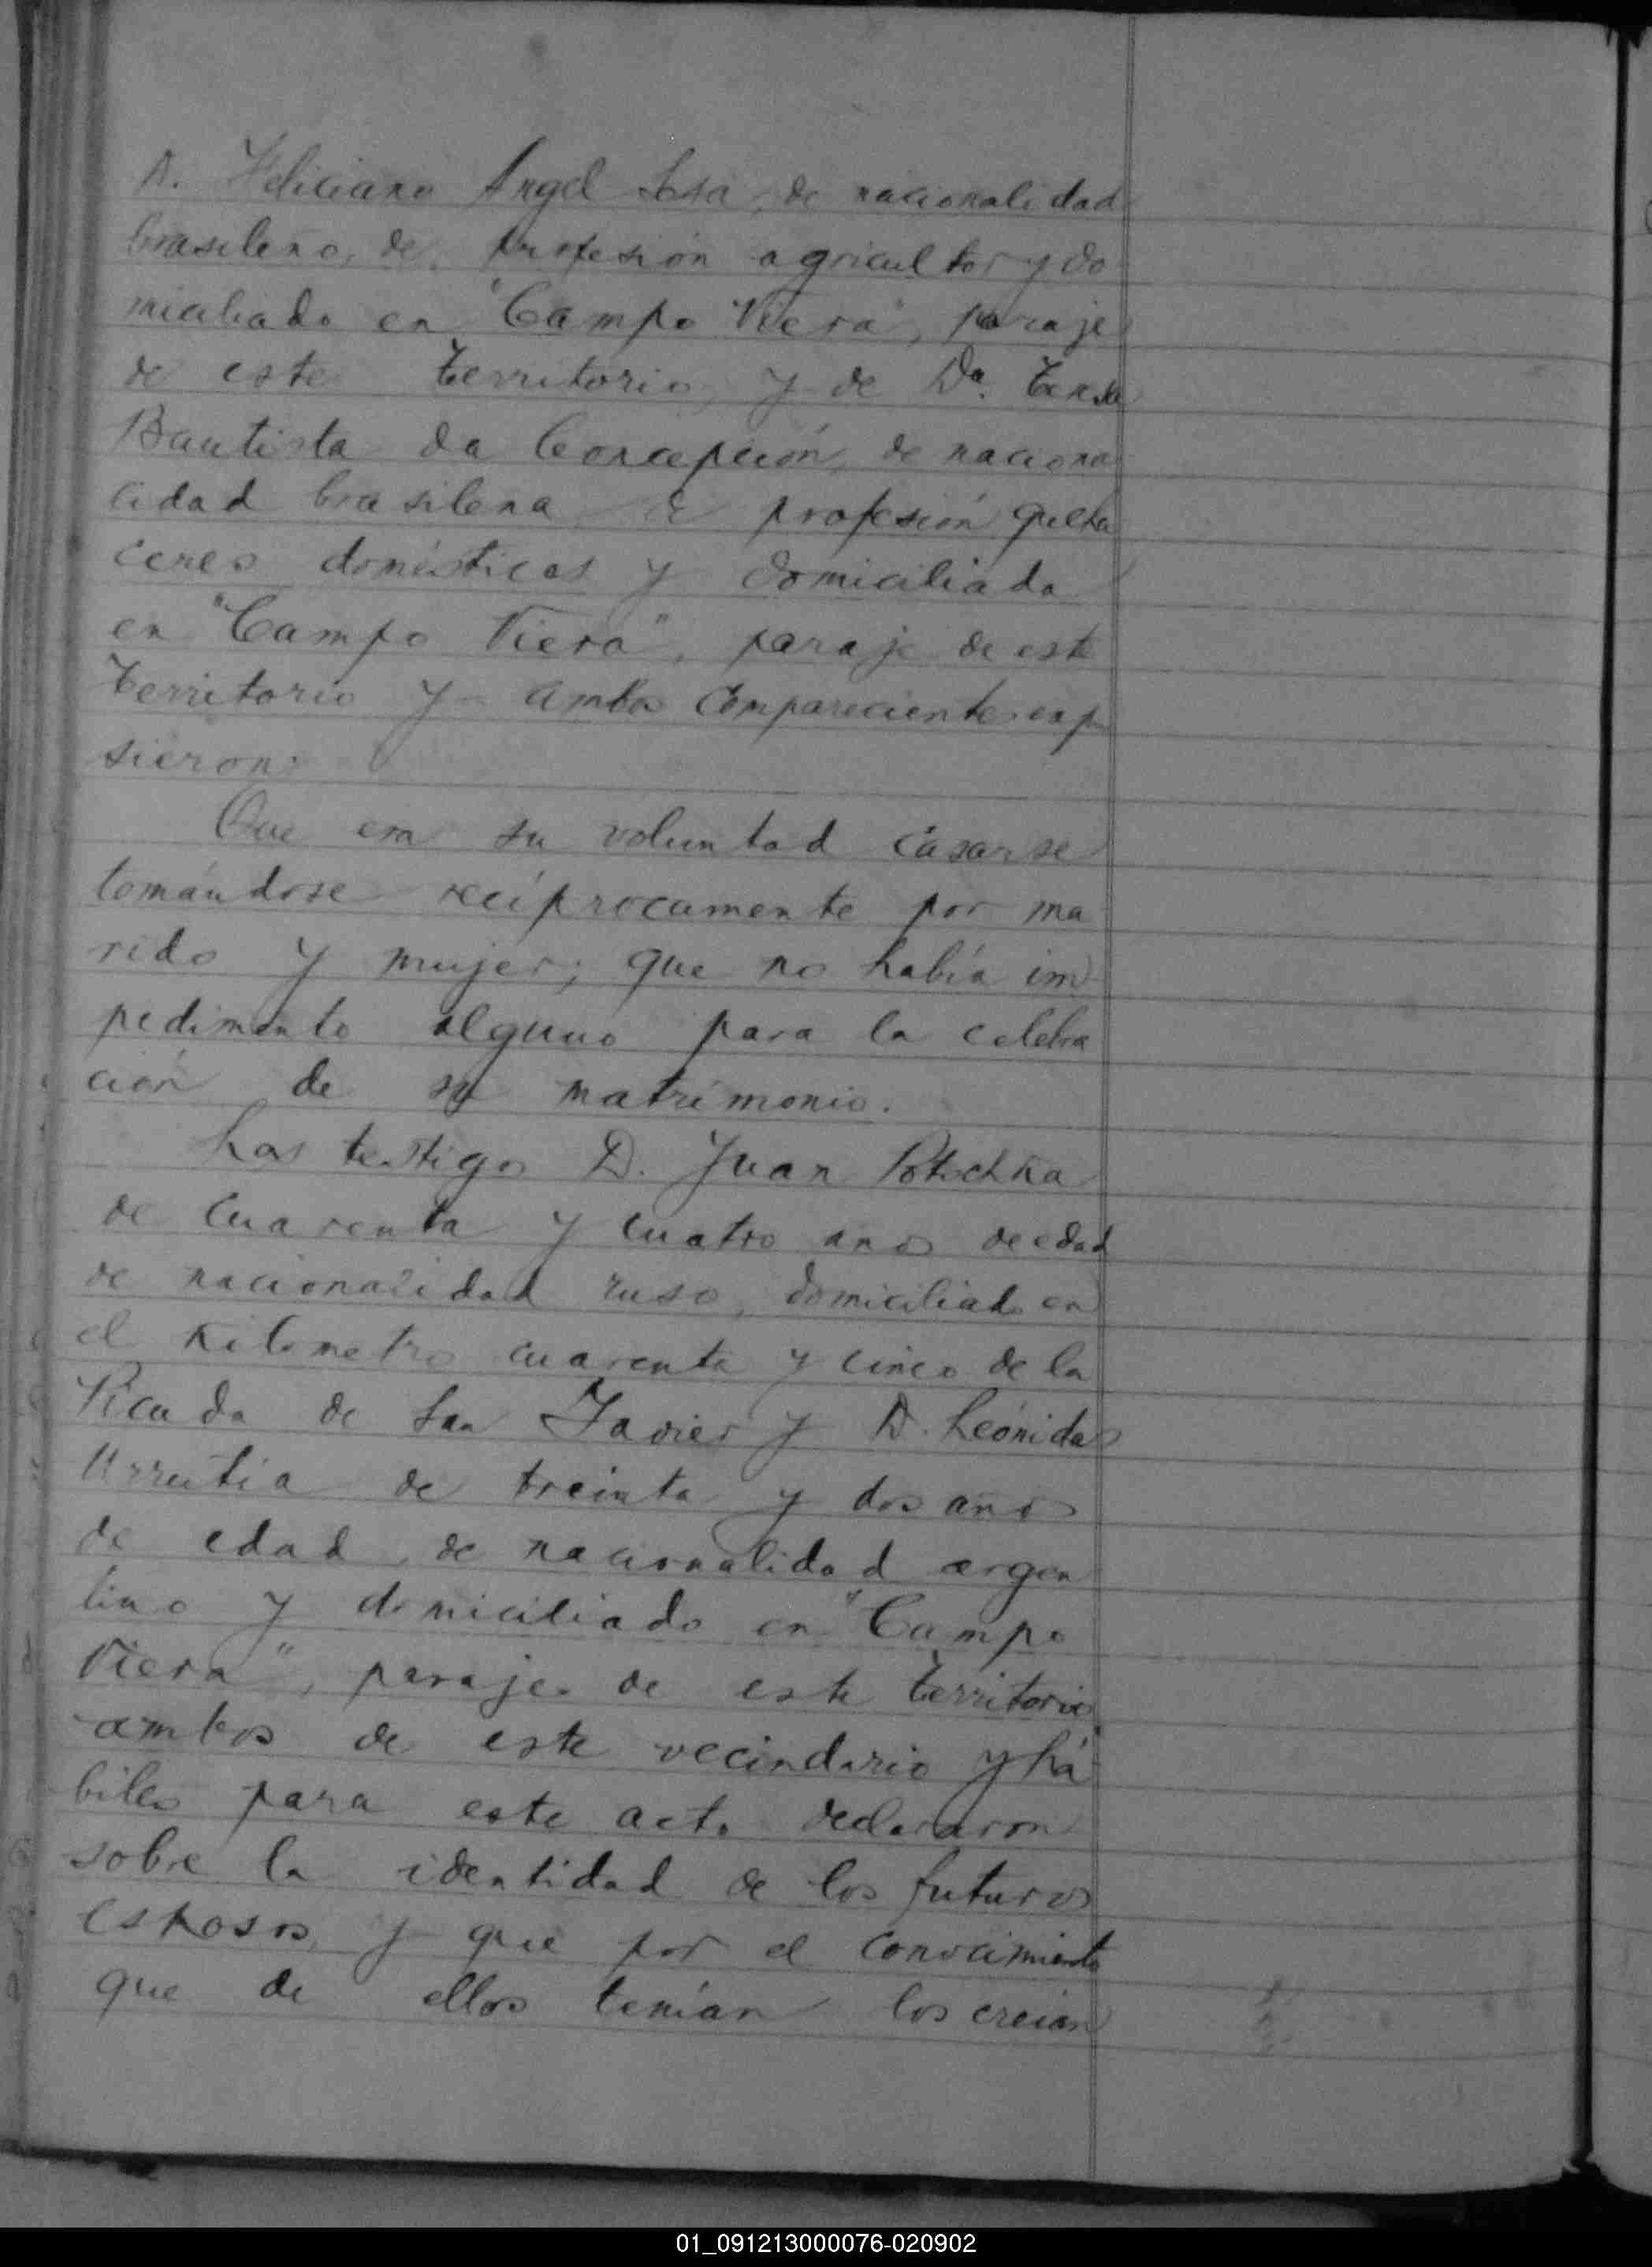 D. Feliciano Angel Sosa, de nacionalidad
brasileño, de profesión agricultor y do
miciliado en "Campo Viera", paraje
de este Territorio, y de Da.
Bautista da Concepción, de naciona
lidad brasilena de profesión queha
ceres domésticos y domiciliada
en "Campo Viera", paraje de este
Territorio y ambos comparecientes expu
sieron:
Que era su voluntad casarse
tomándose recíprocamente por ma
rido y mujer; que no había im
pedimento alguno para la celebra
ción de su matrimonio.
Los testigos D. Juan Potschka
de cuarenta y cuatro años de edad
de nacionalidad ruso, domiciliado en
el Kilometro cuarenta y cinco de la
Picada de San Javier y D. Leónidas
Urrutia de treinta y dos años
de edad, de nacionalidad argen
tino y domiciliado en "Campo
Viera", paraje de este Territorio,
ambos de este vecindario y há
biles para este acto declararon
sobre la identidad de los futuros
esposos, y que por el conocimiento
que de ellos tenían los creían
01_091213000076-020902